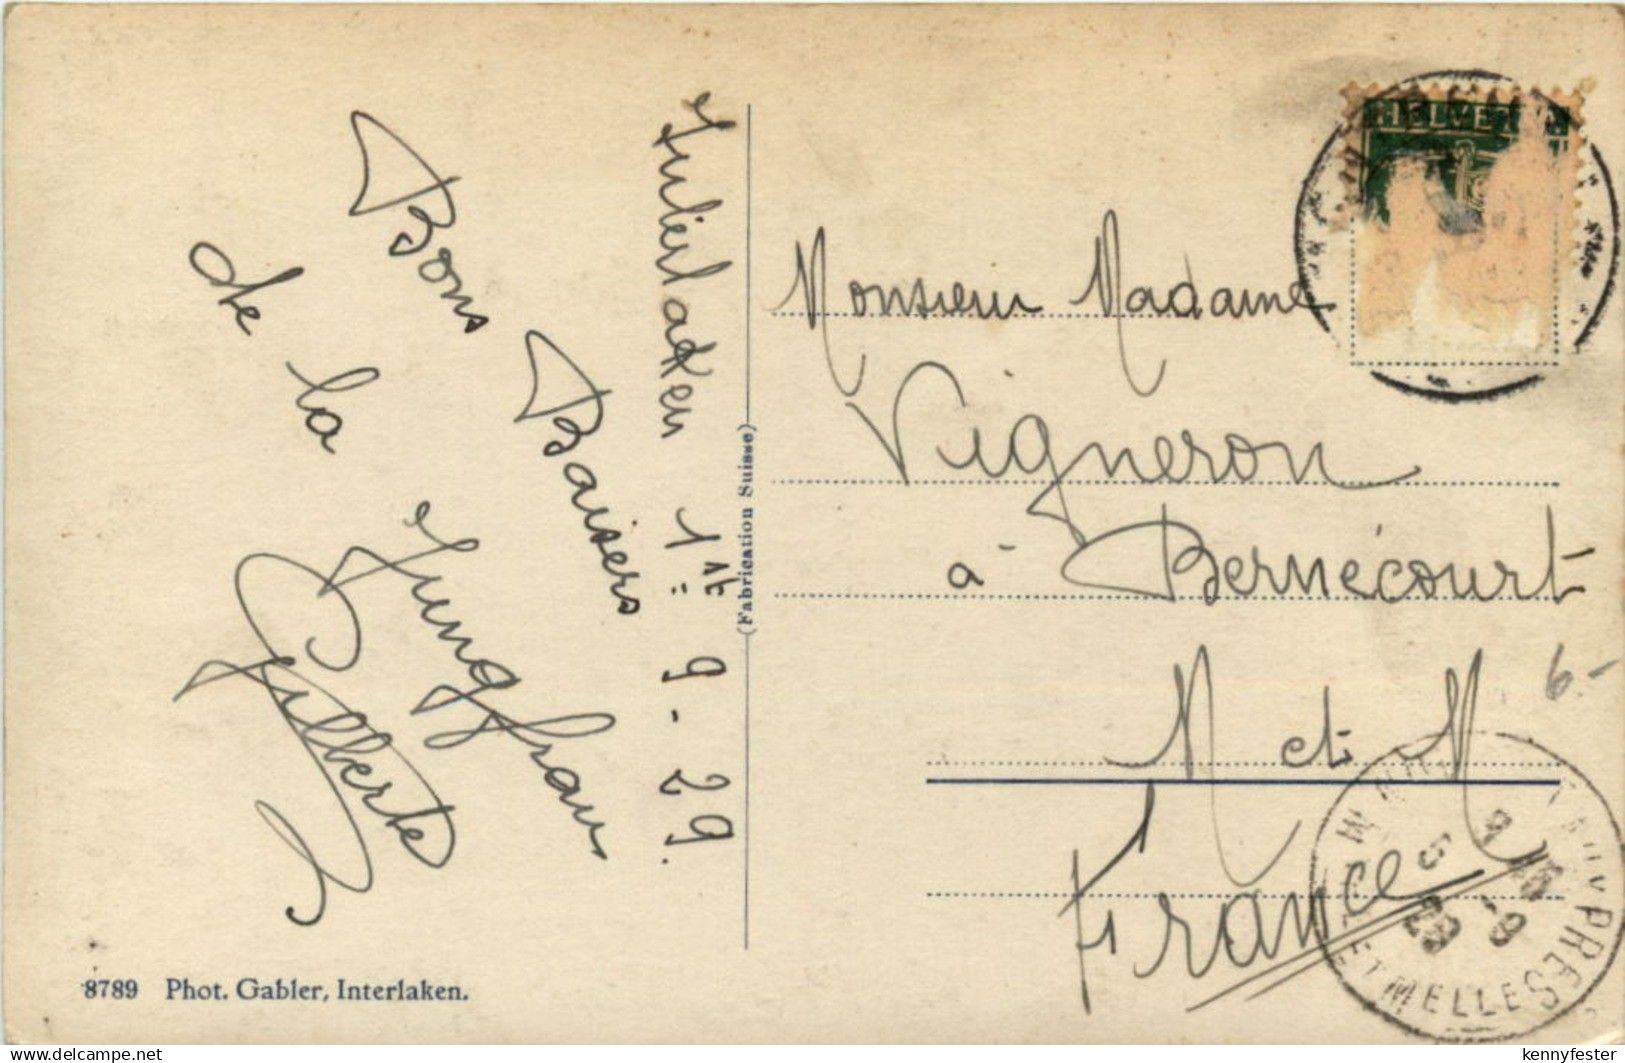 Interlaken 1er 9 - 29.
Bons Baisers
de la Jungfrau
Gilberte
(Fabrication Suisse)
8789 Phot. Gabler, Interlaken.
HELVETIA
Monsieur Madame
Vigneron
à Bernécourt
M et M
France
6.-
PRES
ET MELLES
delcampe.net
kennyfester